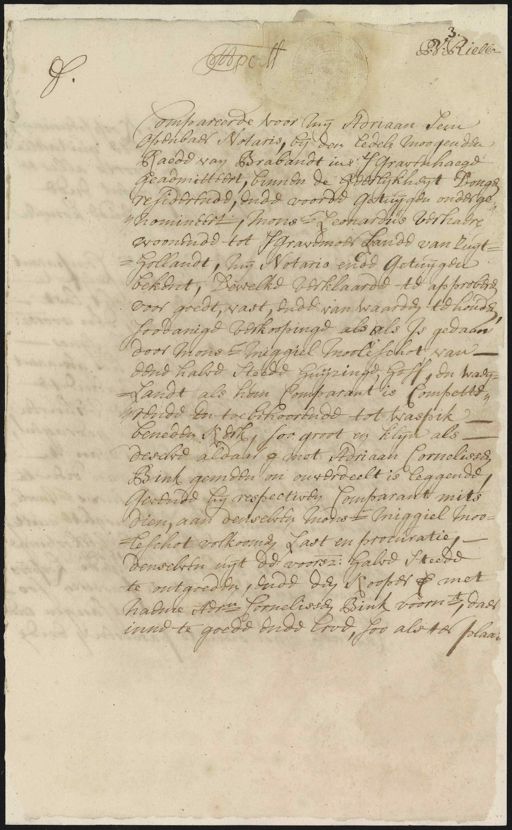 3.
Compareerde voor mij Adriaan
openbaer Notaris, bij den Eedele Moogenden
Raede van Brabandt in s'Gravenhaege
geadmitteert, binnen de heerlijkheijt Donge
resideerende, ende voorde getuijgen onderge-
nomineert, Mons:r Leonardus verhaere
woonende tot s'Gravemoer Lande van Zuijt-
Hollandt, mij Notario ende Getuijgen
bekent, Dewelke verklaerde te approberen
voor goedt, vast, ende van waarde te houden
soodanige verkoopinge als als is gedaan
door Mons:r Miggiel Molleschot van
eene halve Steede huijsinge, hoff, en
Landt als hem Comparant is Compette-
rende en toebehoorende tot Waspik
beneden kerk, soo groot en klijn als
deselve aldaer met Adriaan Cornelissen
Bink gemeen en onverdeelt is leggende,
Gevende hij respectiven Comparant mits
dien, aan denselven Mons:r Miggiel Moo-
leschot volkoomen Last en procuratie,
denselven uijt de voors: halve Steede
te ontgoeden, ende den kooper met
naeme Adr:n Cornelissen Bink voorn:t daer
inne te goede ende Erve, soo als ter plaat